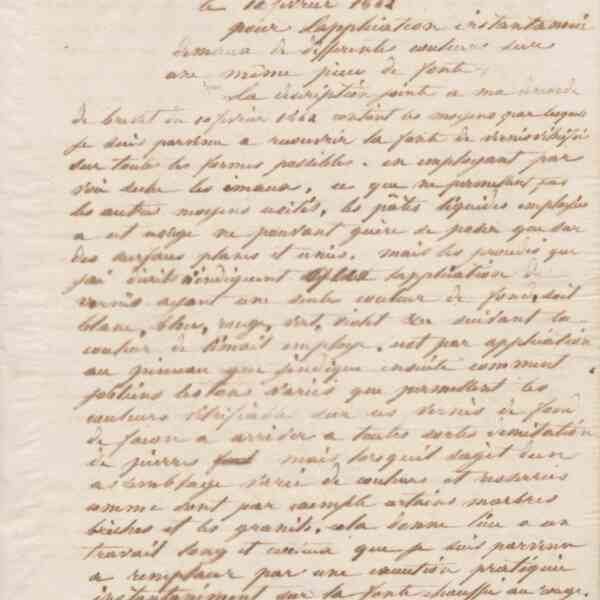 le 10 février 1862
pour l'application instantanée
d'emaux de differentes couleurs sur
une même piece de fonte
La description jointe a ma demande
de brevet du 10 février 1862 contient les moyens par lesquels
je suis parvenu a recouvrir la fonte de vernis vitrifiés
sur toutes les formes possibles. en employant par
voie seche les émaux, ce que ne permettent pas
les autres moyens usités, les pâtes liquides employées
a cet usage ne pouvant guère se poser que sur
des surfaces planes et unies. mais les procedés que
j'ai décrits n'indiquent l'application de
vernis ayant une seule couleur de fond, soit
blanc, bleu, rouge, vert, violet &c suivant la
couleur de l'émail employé. cest par application
au pinceau que j'indique ensuite comment
j'obtiens les tons variés que permettent les
couleurs vitrifiables sur ces vernis de fond
de façon a arriver a toutes sortes d'imitation
de pierres mais lorsqu'il sagit d'un
assemblage varié de couleurs et resserrés
comme sont par exemple certains marbres
brèches et les granits. cela donne lieu a un
travail long et couteux que je suis parvenu
a remplacer par une execution pratiquée
instantanément sur la fonte chauffée au rouge.